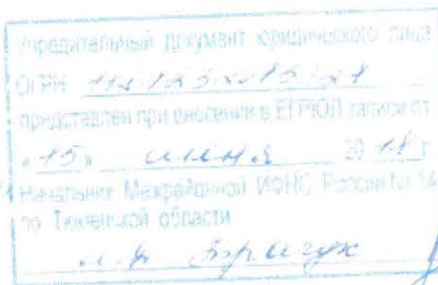 Учредительный документ юридического лица
ОГРН
представлен при внесении в ЕГРЮЛ записи от
« 15 » июня 20 18 г
Начальник Межрайонной ИФНС России № 14
по Тюменской области